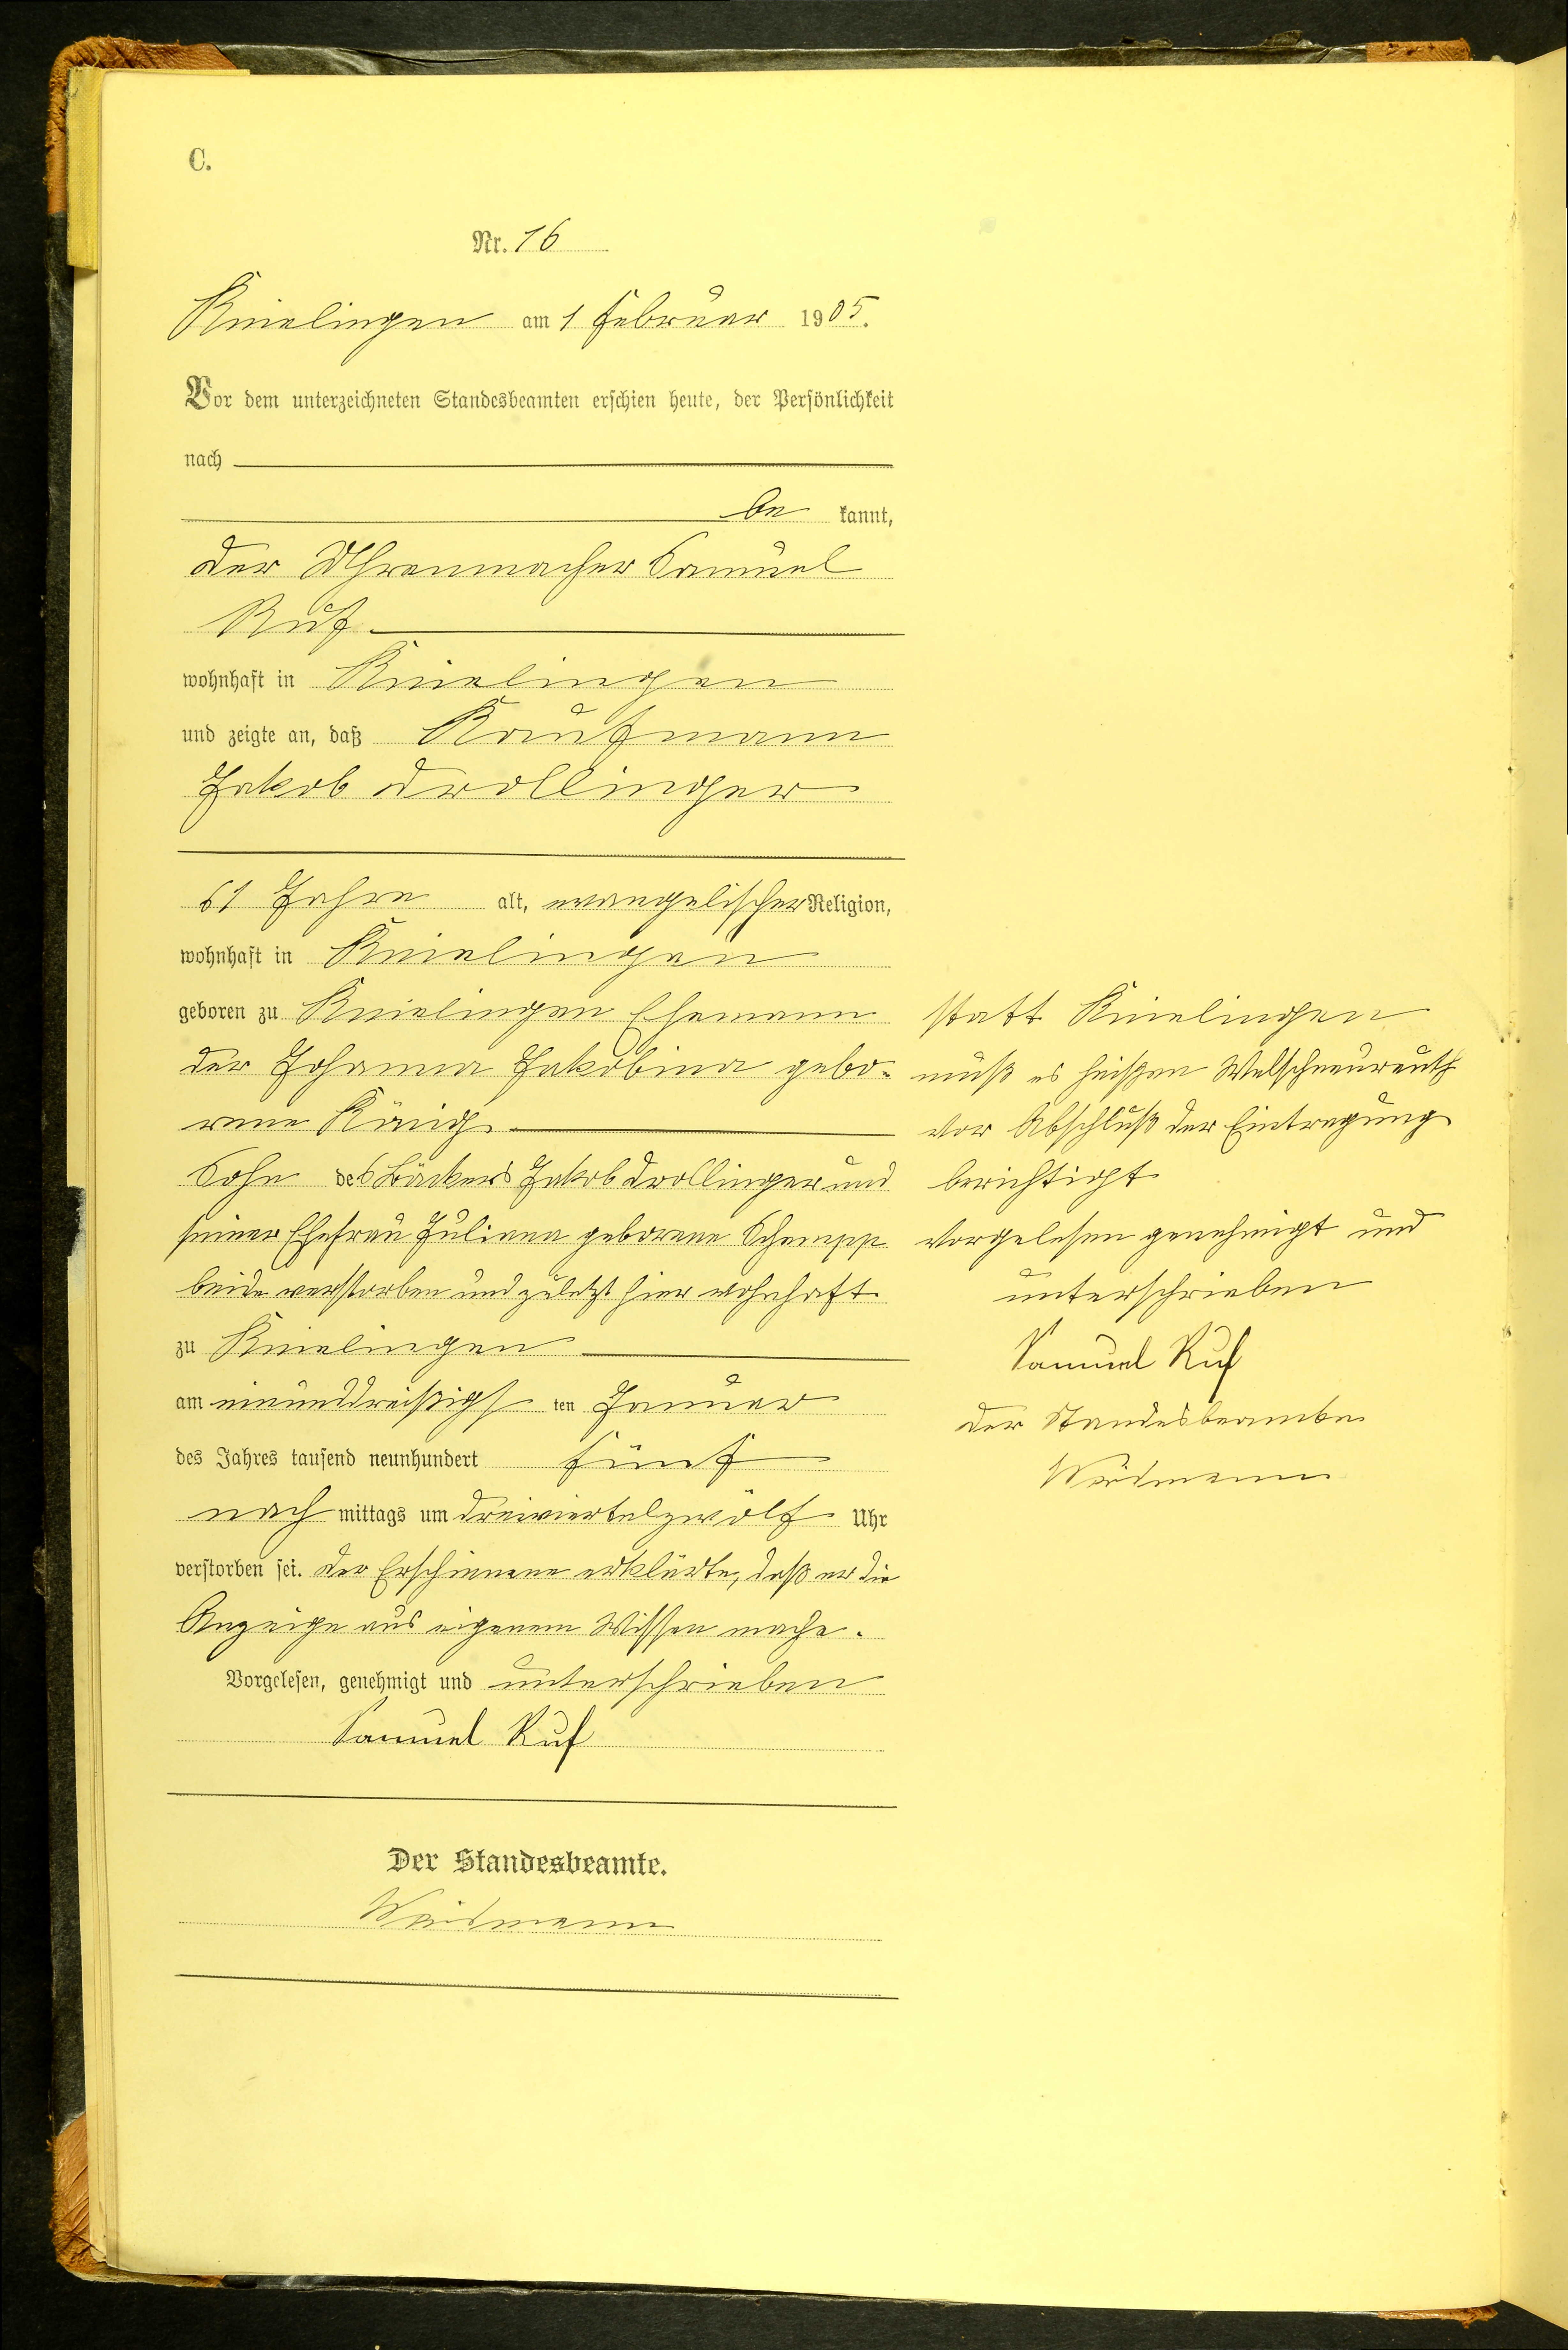 C.
Nr. 16
Knielingen am 1 Februar 1905.
Vor dem unterzeichneten Standesbeamten erschien heute, der Persönlichkeit
nach
be kannt,
der Uhrenmacher Samuel
Ruf
wohnhaft in Knielingen
und zeigte an, daß Kaufmann
Jakob Drollinger
61 Jahre alt, evangelischer Religion,
wohnhaft in Knielingen
geboren zu Knielingen Ehemann
der Johanna Jakobina gebo-
rene König
Sohn des Bäckers Jakob Drollinger und
seiner Ehefrau Juliana geborene Schempp
beide verstorben und zuletzt hier wohnhaft
zu Knielingen
am einunddreißigs ten Januar
des Jahres tausend neunhundert fünf
nach mittags um dreiviertelzwölf Uhr
verstorben sei. Der Erschienene erklärte, daß er die
Anzeige aus eigenem Wissen mache.
Vorgelesen, genehmigt und unterschrieben
Samuel Ruf
Der Standesbeamte.
statt Knielingen
muß es heißen Welschneureuth
vor Abschluß der Eintragung
berichtigt
Vorgelesen genehmigt und
unterschrieben
Samuel Ruf
Der Standesbeamte